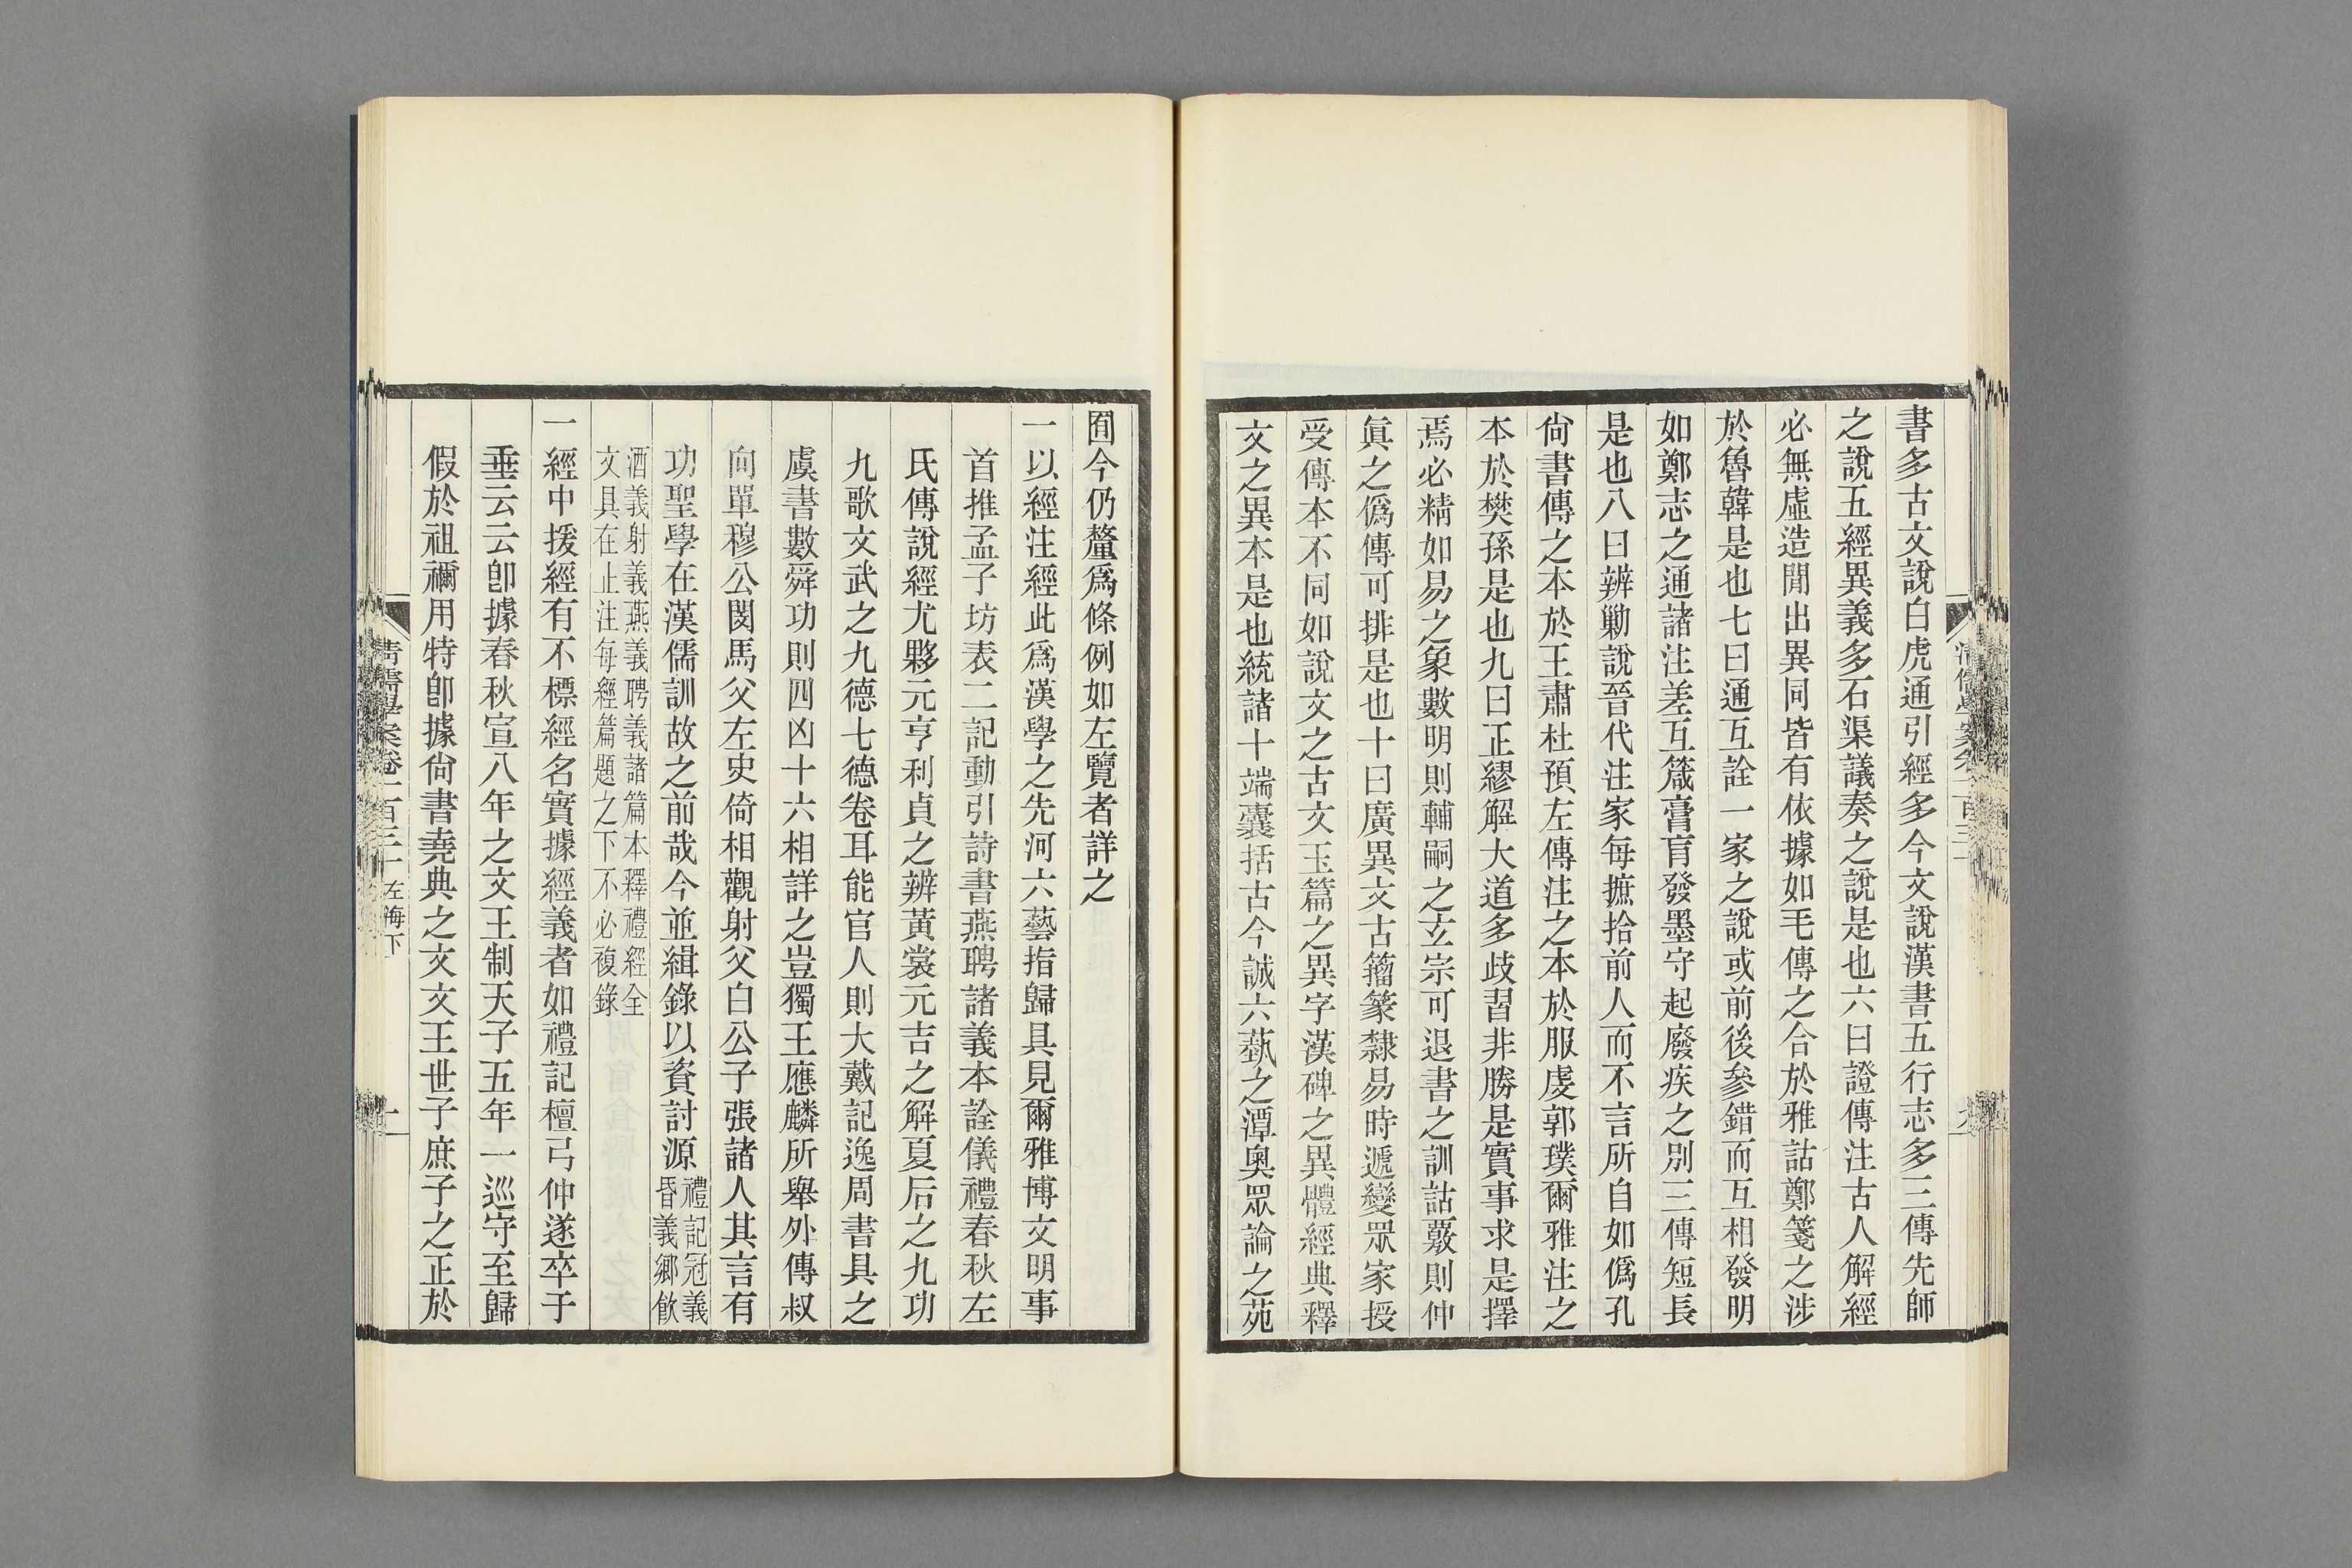 書多古文說白虎通引經多今文說漢書五行志多三傳先師
之說五經異義多石渠議奏之說是也六曰證傳注古人解經
必無虛造閒出異同皆有依據如毛傳之合於雅詁鄭箋之涉
於魯韓是也七曰通互詮一家之說或前後參錯而互相發明
如鄭志之通諸注差互箴膏肓發墨守起廢疾之別三傳短長
是也八曰辨勦說晉代注家每摭拾前人而不言所自如僞孔
尙書傳之本於王肅杜預左傳注之本於服虔郭璞爾雅注之
本於樊孫是也九曰正繆解大道多歧習非勝是實事求是擇
焉必精如易之象數明則輔嗣之玄宗可退書之訓詁覈則仲
眞之僞傳可排是也十曰廣異文古籀篆隸易時遞變眾家授
受傳本不同如說文之古文玉篇之異字漢碑之異體經典釋
文之異本是也統諸十端囊括古今誠六藝之潭奧眾論之苑
囿今仍釐爲條例如左覽者詳之
一以經注經此爲漢學之先河六藝指歸具見爾雅博文明事
首推孟子坊表二記動引詩書燕聘諸義本詮儀禮春秋左
氏傳說經尤夥元亨利貞之辨黃裳元吉之解夏后之九功
九歌文武之九德七德卷耳能官人則大戴記逸周書具之
虞書數舜功則四凶十六相詳之豈獨王應麟所舉外傳叔
向單穆公閔馬父左史倚相觀射父白公子張諸人其言有
功聖學在漢儒訓故之前哉今並緝錄以資討源禮記冠義
昏義鄉飮
酒義射義燕義聘義諸篇本釋禮經全
文具在止注每經篇題之下不必複錄
一經中援經有不標經名實據經義者如禮記檀弓仲遂卒于
垂云云卽據春秋宣八年之文王制天子五年一巡守至歸
假於祖禰用特卽據尙書堯典之文文王世子庶子之正於
清儒學案卷一百三十 左海下